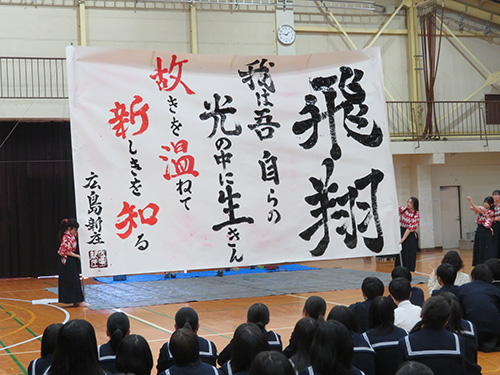 飛翔
我は吾自らの
光の中に生きん
故きを温ねて
新しきを知る
広島新庄